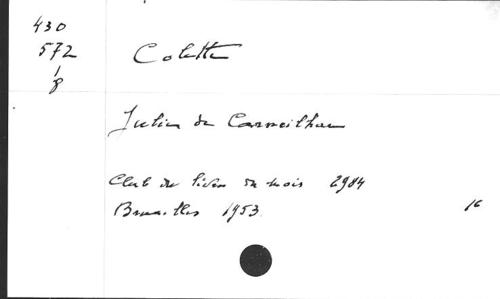 430
572
1
8
Colette
Julie de Carneilhan
Club du livre du mois 2984
Bruxelles 1953
16